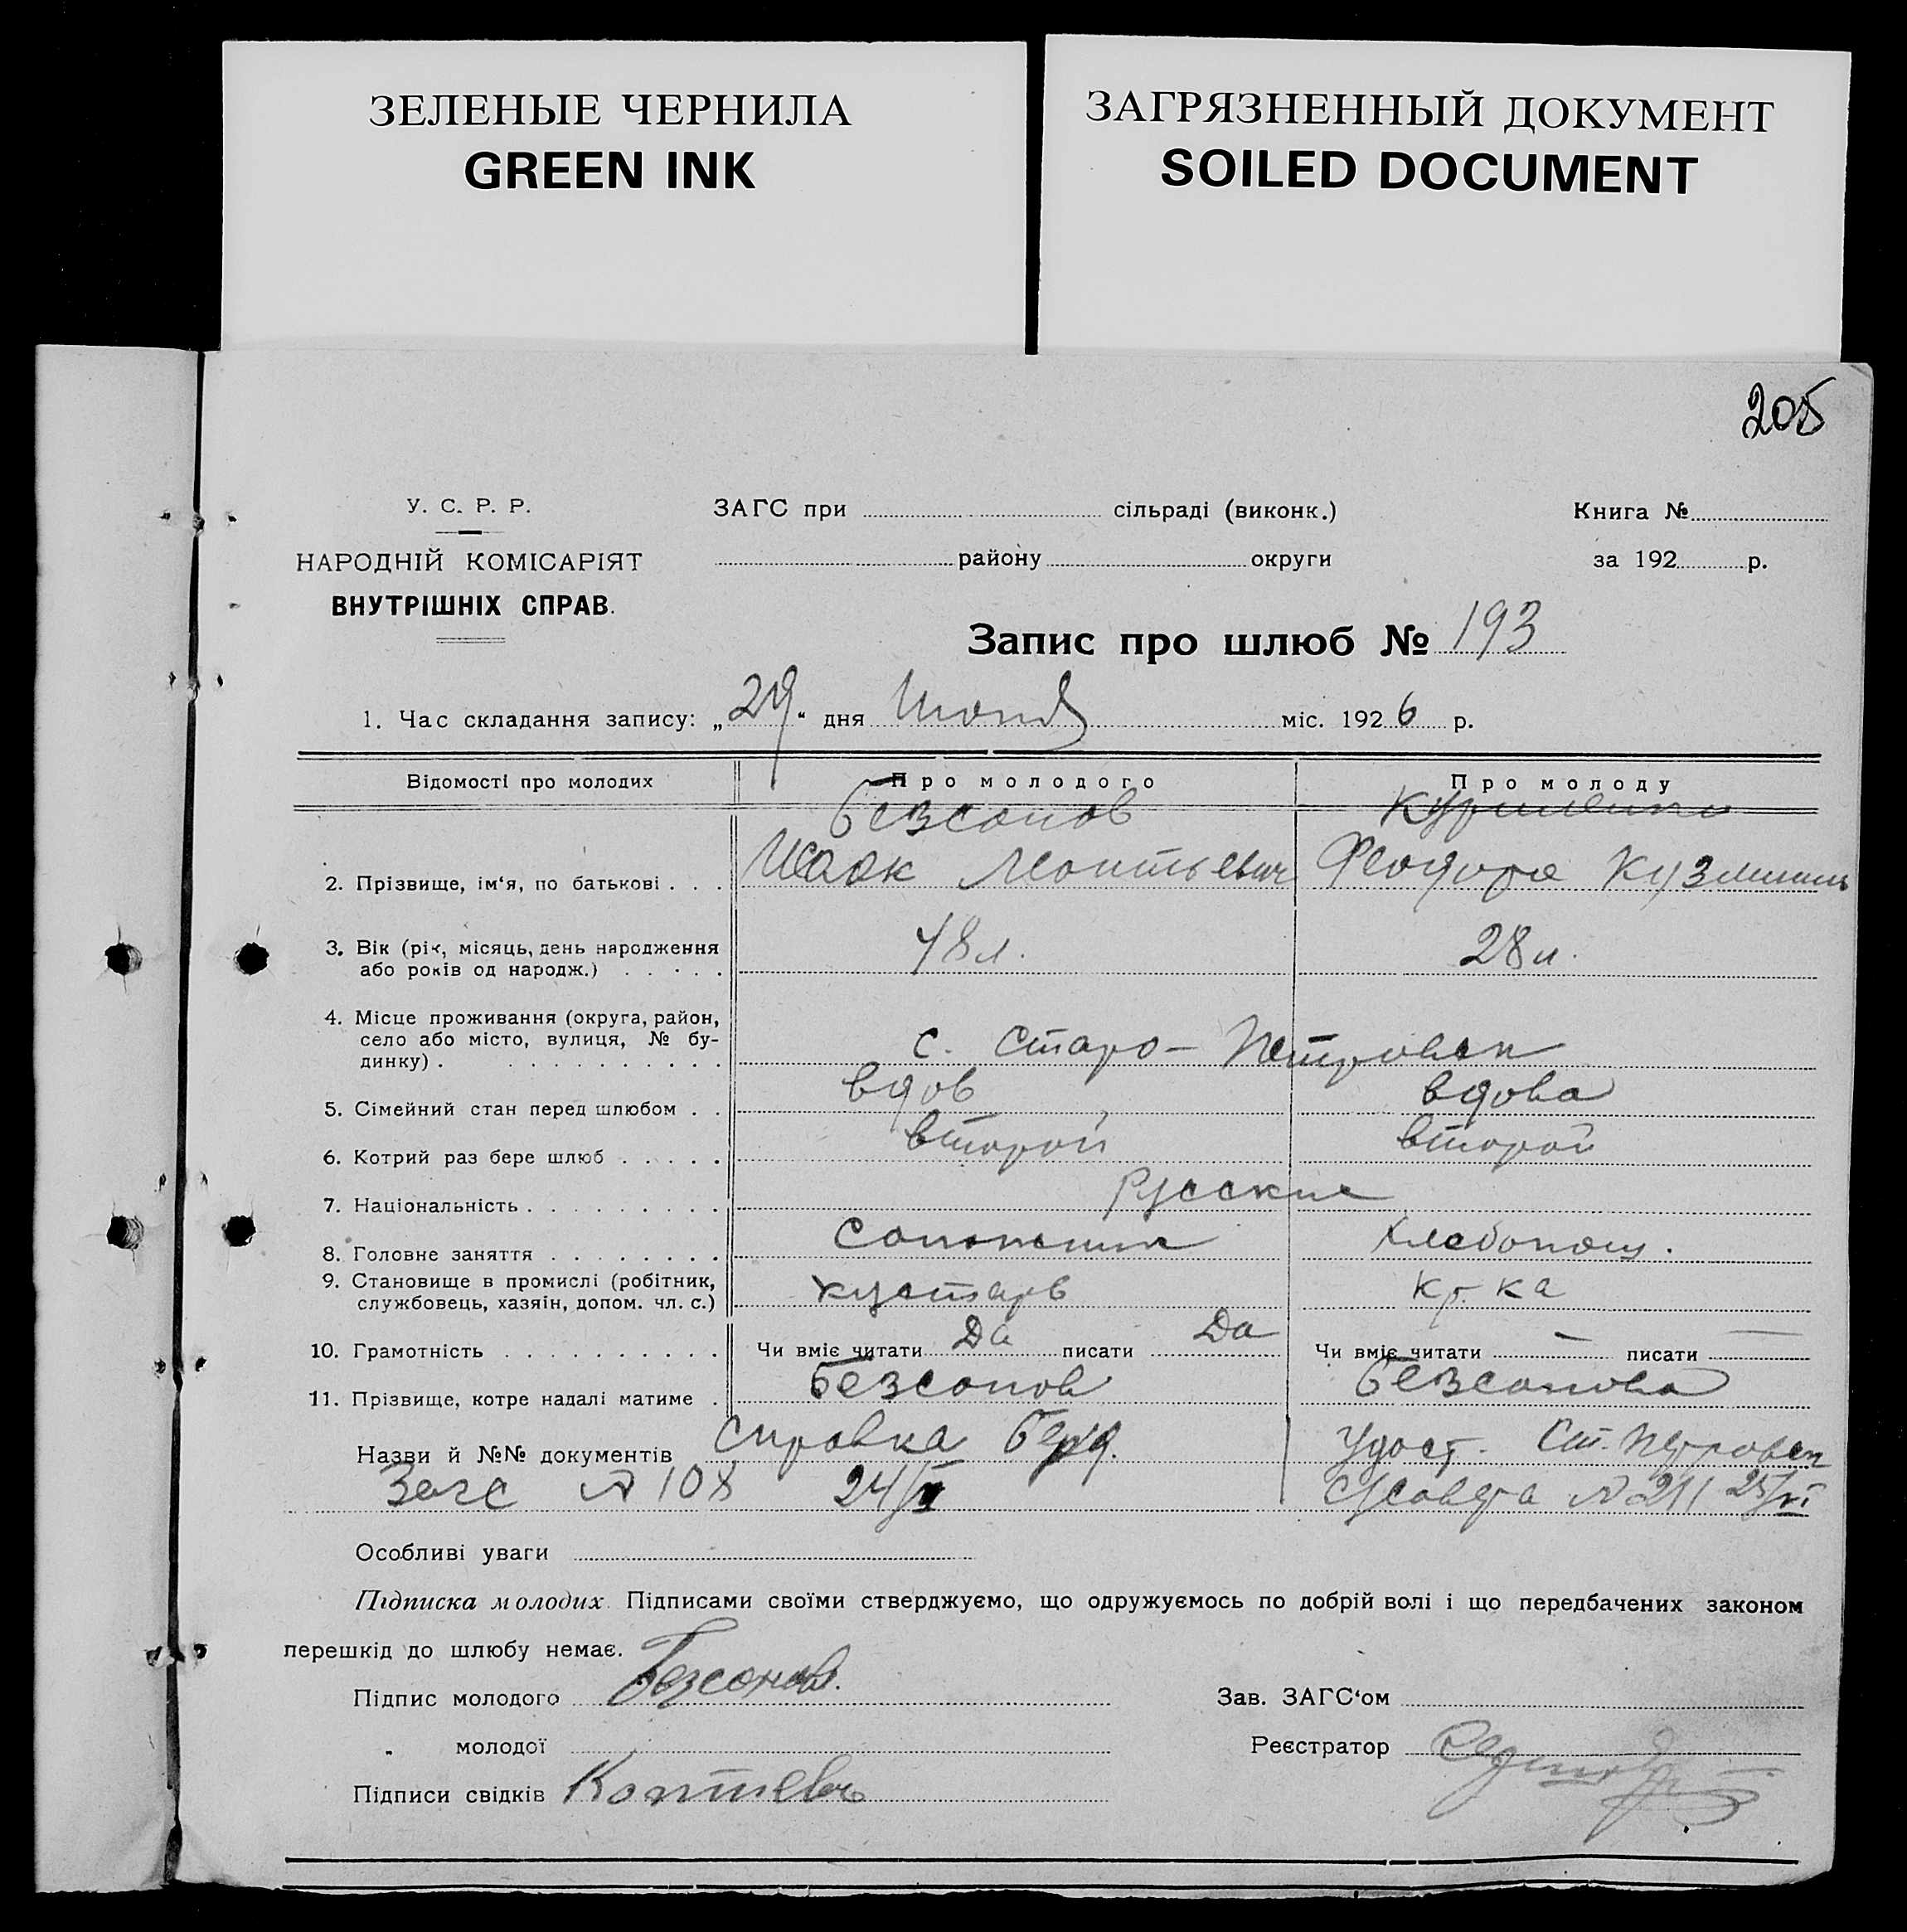 ЗЕЛЕНЫЕ ЧЕРНИЛА
GREEN INK
ЗАГРЯЗНЕННЫЙ ДОКУМЕНТ
SOILED DOCUMENT
205
У. С. Р. Р.
НАРОДНІЙ КОМІСАРІЯТ
ВНУТРІШНІХ СПРАВ.
ЗАГС при сільраді (виконк.)
району округи
Книга №
за 192 р.
Запис про шлюб № 193
1. Час складання запису: „29“ дня міс. 1926 р.
Відомості про молодих Про молодого Про молоду
Безсонов
2. Прізвище, ім‘я, по батькові . . . Исаак Леонтьевич Феодора
3. Вік (рік, місяць, день народження 48 л. 28 л.
або років од народж.) . . . . .
4. Місце проживання (округа, район,
село або місто, вулиця, № бу- с. Старо-
динку) . . . . . . . . . . .
5. Сімейний стан перед шлюбом . . вдов вдова
6. Котрий раз бере шлюб . . . . . второй второй
7. Національність . . . . . . . . . Русские
8. Головне заняття . . . . . . . . Сапожник хлебопаш.
9. Становище в промислі (робітник, кустарь кр. ка
службовець, хазяїн, допом. чл. с.)
10. Грамотність . . . . . . . . . . Чи вміє читати Да писати Да Чи вміє читати — писати —
11. Прізвище, котре надалі матиме . Безсонов Безсонова
Назви й №№ документів справка Берд. Удост. Ст. Петровск
Загс № 108 24/VI с/совета № 211 25/VI
Особливі уваги
Підписка молодих. Підписами своїми стверджуємо, що одружуємось по добрій волі і що передбачених законом
перешкід до шлюбу немає.
Підпис молодого Безсонов. Зав. ЗАГС‘ом
„ молодої Реєстратор
Підписи свідків